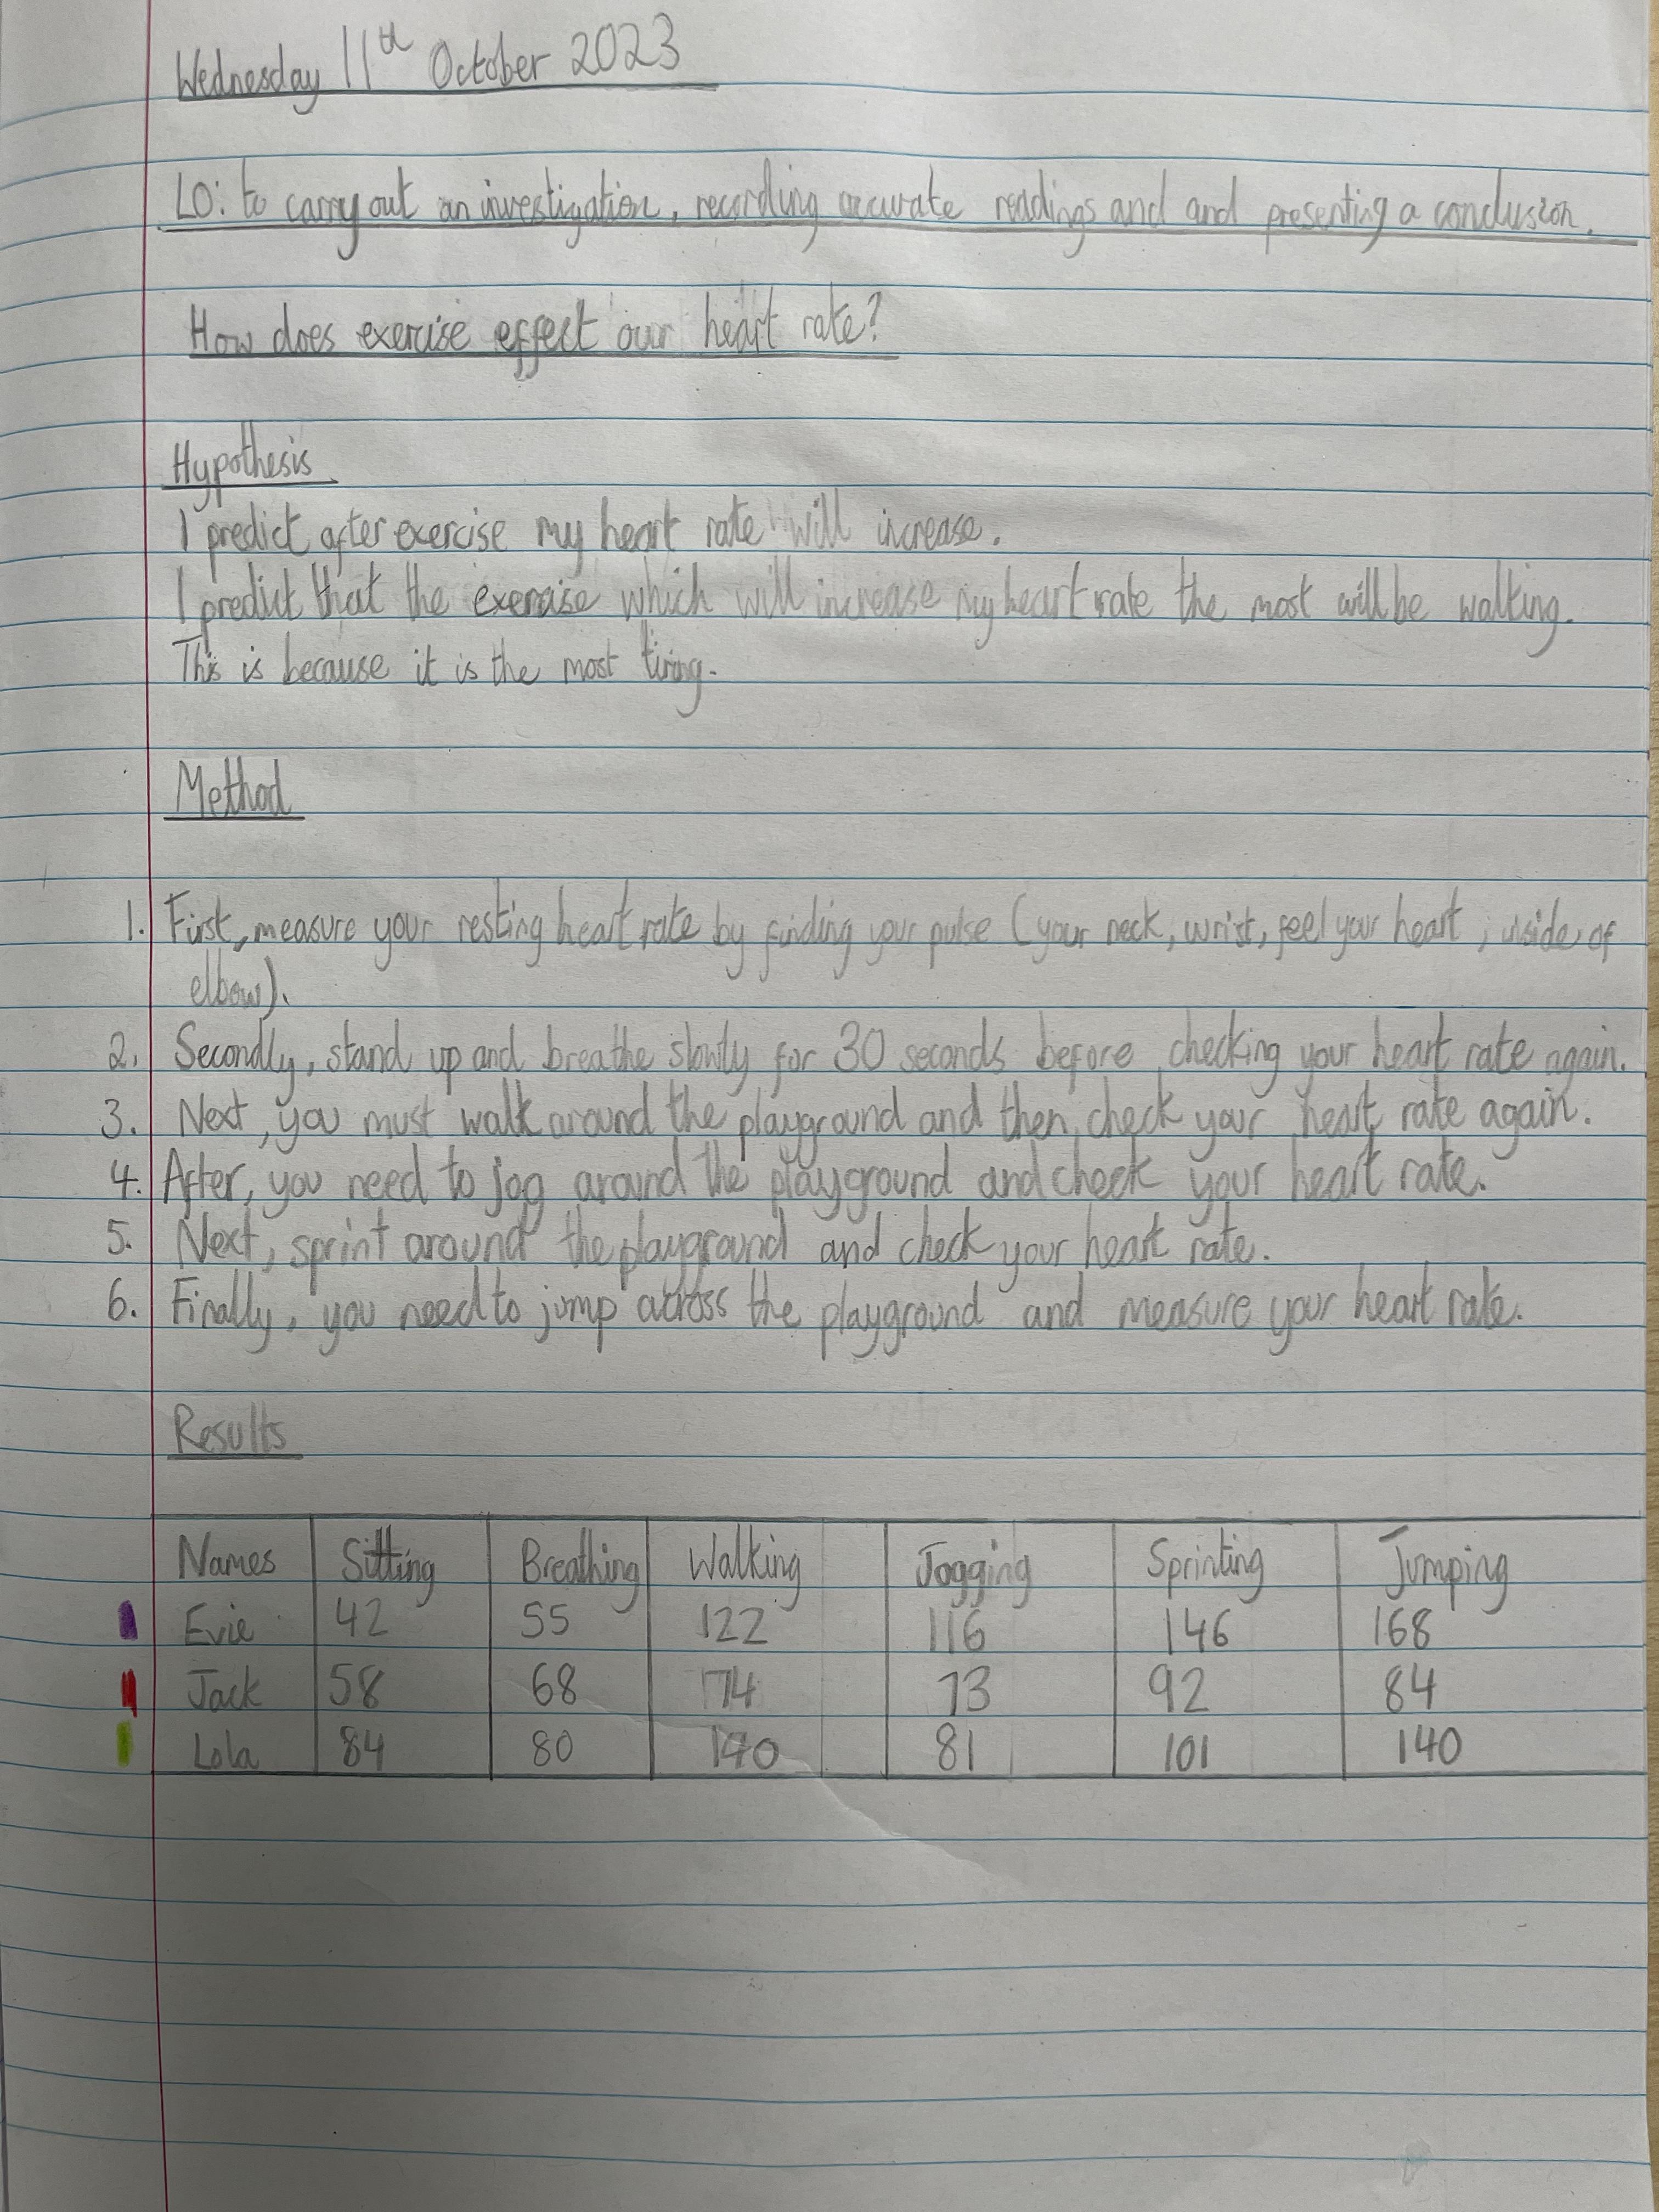 Wednesday 11th October 2023
LO: to carry out an investigation, recording accurate readings and and presenting a conclusion.
How does exercise effect our heart rate?
Hypothesis
I predict after exercise my heart rate will increase.
I predict that the exercise which will increase my heart rate the most will be walking.
This is because it is the most tiring.
Method
1. First, measure your resting heart rate by finding your pulse (your neck, wrist, feel your heart, inside of
elbow).
2. Secondly, stand up and breathe slowly for 30 seconds before checking your heart rate again.
3. Next, you must walk around the playground and then check your heart rate again.
4. After, you need to jog around the playground and check your heart rate.
5. Next, sprint around the playground and check your heart rate.
6. Finally, you need to jump across the playground and measure your heart rate.
Results
Names Sitting Breathing Walking Jogging Sprinting Jumping
Evie 42 55 122 116 146 168
Jack 58 68 73 92 84
Lola 84 80 81 101 140